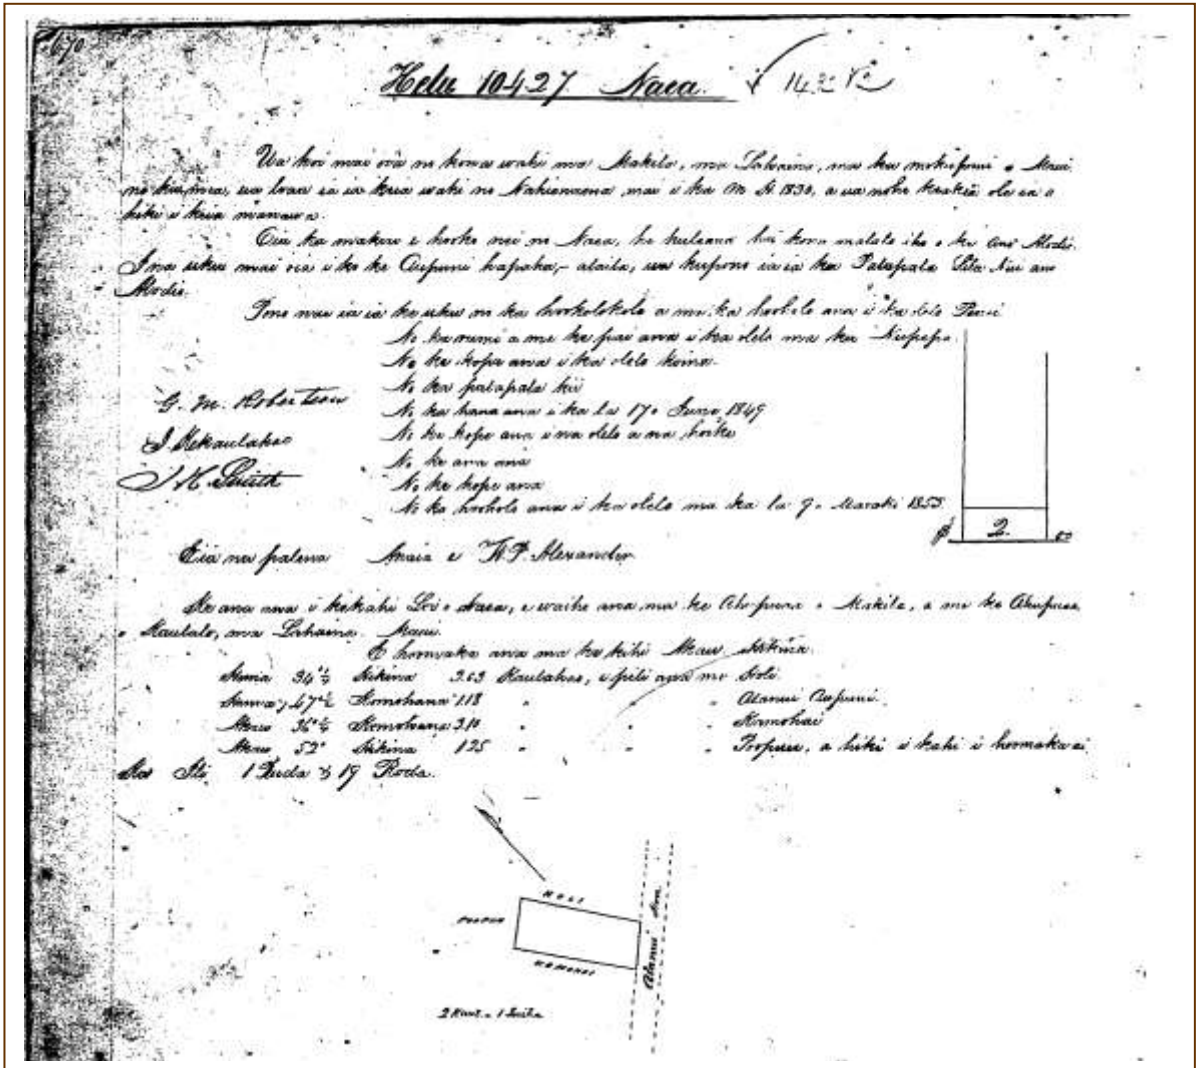 670
Helu 10427. Naea.
Ua hoi mai oia no kona wahi ma Makila, ma Lahaina, ma ka mokupuni o Maui.
no kumea, ua loaa ia ia keia wahi no Nahienaena, mai i ka M. H. 1830, a ua noho keakea ole ia a
hiki i keia manawa.
Eia ka makou e hooko nei no Naea, he kuleana kona malalo iho o ke ano Alodio.
Ina uku mai oia i ko ke Aupuni hapaha,- alaila, ua kupono ia ia ka Palapala Sila Nui ano
Alodio.
Pono nae ia ia ke uku no ka hookolokolo a me ka hooholo ana i ka olelo Penei
No ka rumi a me ke pai ana i ka olelo ma ka Nupepa.
No ke kope ana i ka olelo hoina.
No ka palapala kii
No ka hana ana i ka la 17o Iune, 1849
No ke kope ana i na olelo a na hoike
No ke ana ana
No ke kope ana
No ka hooholo ana i ka olelo ma ka la 9. Maraki 1853
G. M. Robertson
J. Kekaulahao
J H Smith
$ 2. 00
Eia na palena Anaia e W. P. Alexander.
Ke ana ana i kekahi Loi o Naea, e waiho ana ma ke Ahupuaa o Makila, a me ke Ahupuaa
o Maui.
E hoomaka ana ma ke kihi Akau Hikina.
Hema 34° ½ Hikina 3.03 Kaulahao, e pili ana me Holi.
Hema, 47° ½ Komohana 1.18 " " " Alanui Aupuni.
Akau 36° ½ Komohana 3.10 " " "
Akau 52° Hikina 1.25 " " " a hiki i kahi i hoomaka ai.
Ka Ili 1 Ruda & 19 Roda.
HOLI
Alanui
2 Kaul. = 1 Iniha